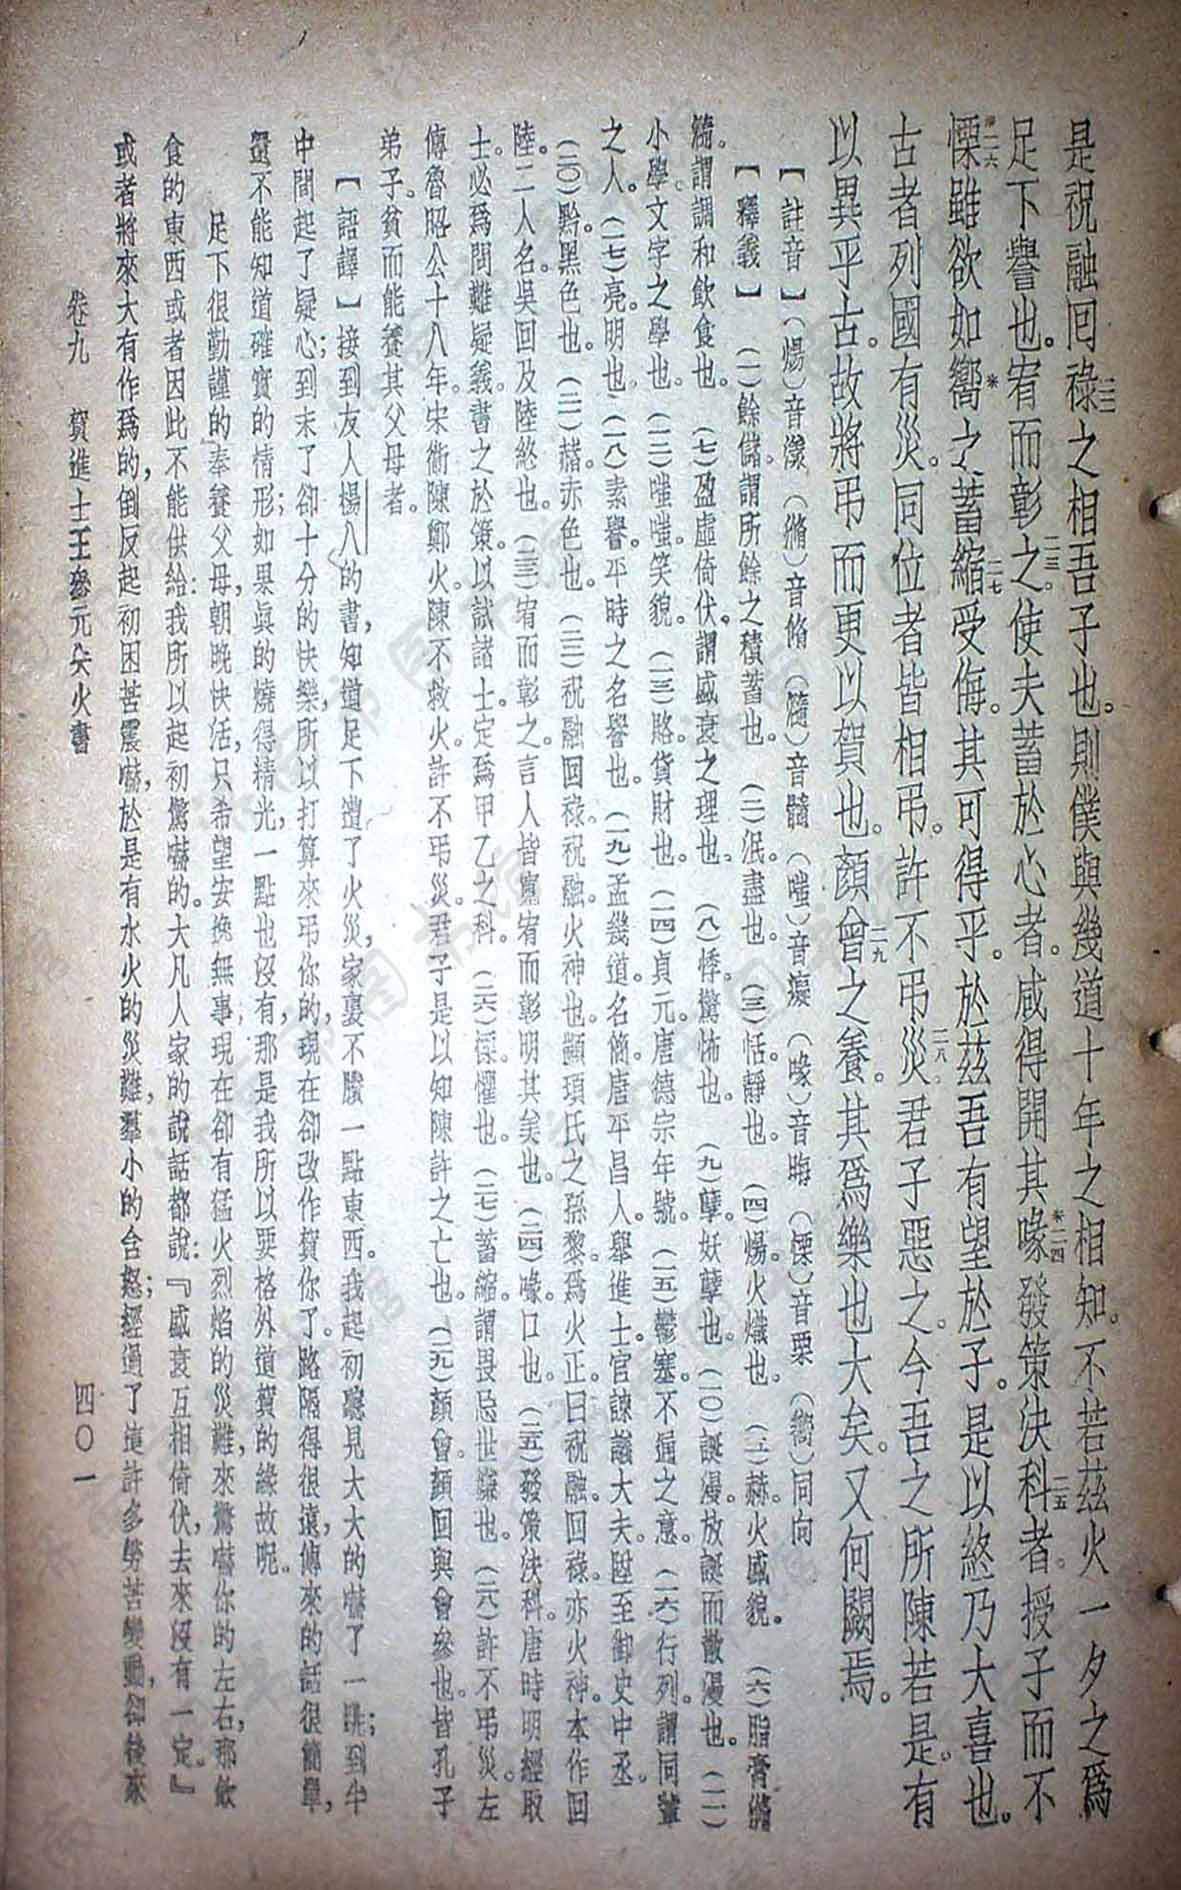 是祝融囘祿二二之相吾子也。則僕與幾道十年之相知。不若茲火一夕之爲
足下譽也。宥而彰之二三。使夫蓄於心者。咸得開其喙*二四發策決科二五者。授子而不
慄*二六雖欲如嚮*之蓄縮二七受侮。其可得乎。於茲吾有望於子。是以終乃大喜也。
古者列國有災。同位者皆相弔。許不弔災二八。君子惡之。今吾之所陳若是。有
以異乎古。故將弔而更以賀也。顏曾二九之養。其爲樂也大矣。又何闕焉。
【註音】（煬）音漾（滫）音脩（瀡）音髓（嗤）音癡（喙）音晦（慄）音栗（嚮）同向
【釋義】（一）餘儲。謂所餘之積蓄也。（二）泯。盡也。（三）恬。靜也。（四）煬。火熾也。（五）赫。火盛貌。（六）脂膏滫
瀡。謂調和飲食也。（七）盈虛倚伏。謂盛衰之理也。（八）悸。驚怖也。（九）孽。妖孽也。（一〇）誕漫。放誕而散漫也。（一一）
小學。文字之學也。（一二）嗤嗤。笑貌。（一三）賂。貨財也。（一四）貞元。唐德宗年號。（一五）鬱塞。不通之意。（一六）行列。謂同輩
之人。（一七）亮。明也。（一八）素譽。平時之名譽也。（一九）孟幾道。名簡。唐平昌人。舉進士。官諫議大夫。陞至御史中丞。
（二〇）黔。黑色也。（二一）赭。赤色也。（二二）祝融回祿。祝融。火神也。顓頊氏之孫黎。爲火正。曰祝融。回祿。亦火神。本作回
陸。二人名。吳回及陸終也。（二三）宥而彰之。言人皆寬宥而彰明其美也。（二四）喙。口也。（二五）發策決科。唐時明經取
士。必爲問難疑義。書之於策。以試諸士。定爲甲乙之科。（二六）慄。懼也。（二七）蓄縮。謂畏忌世嫌也。（二八）許不弔災。左
傳魯昭公十八年。宋衛陳鄭火。陳不救火。許不弔災。君子是以知陳許之亡也。（二九）顏曾。顏回與曾參也。皆孔子
弟子。貧而能養其父母者。
【語譯】接到友人楊八的書，知道足下遭了火災，家裏不賸一點東西。我起初聽見大大的嚇了一跳；到半
中間起了疑心；到末了卻十分的快樂，所以打算來弔你的，現在卻改作賀你了。路隔得很遠，傳來的話很簡單，
還不能知道確實的情形；如果眞的燒得精光，一點也沒有，那是我所以要格外道賀的緣故呢。
足下很勤謹的奉養父母，朝晚快活，只希望安逸無事；現在卻有猛火烈焰的災難，來驚嚇你的左右，那飲
食的東西或者因此不能供給：我所以起初驚嚇的。大凡人家的說話都說：『盛衰互相倚伏，去來沒有一定。』
或者將來大有作爲的，倒反起初困苦震嚇，於是有水火的災難，羣小的合怒；經過了這許多勞苦變動，卻後來
卷九 賀進士王參元失火書 四〇一